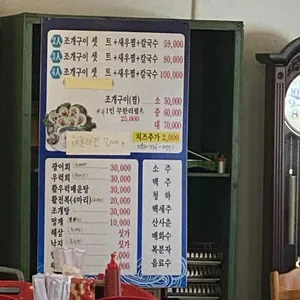 2인 조개구이 셋 트+새우찜+칼국수 59,000
3인 조개구이 셋 트+새우찜+칼국수 80,000
4인 조개구이 셋 트+새우찜+칼국수 100,000
조개구이(찜) 소 50,000
1인 무한리필 중 60,000
25,000 대 70,000
치즈추가 2,000
광어회 30,000 소주
우럭회 30,000 맥주
활우럭매운탕 30,000 청하
활전복(4마리) 20,000 백세주
조개탕 30,000 산사춘
멍게 10,000 매화수
해삼 싯가 복분자
낙지 싯가 음료수